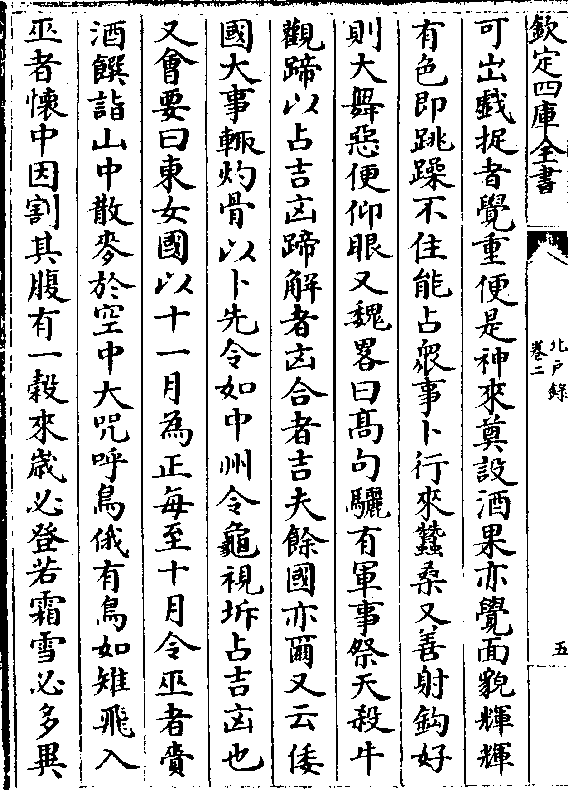 欽定四庫全書
北戶錄
卷二
五
可出戱捉者覺重便是神來奠設酒果亦覺面貌輝輝
有色即跳躁不住能占衆事卜行來蠶桑又善射鈎好
則大舞惡便仰眼又魏畧曰髙句驪有軍事祭天殺牛
觀蹄以占吉凶蹄解者凶合者吉夫餘國亦爾又云倭
國大事輙灼骨以卜先令如中州令龜視坼占吉凶也
又會要曰東女國以十一月為正每至十月令巫者賫
酒饌詣山中散麥於空中大咒呼鳥俄有鳥如雉飛入
巫者懷中因割其腹有一榖來歲必登若霜雪必多異